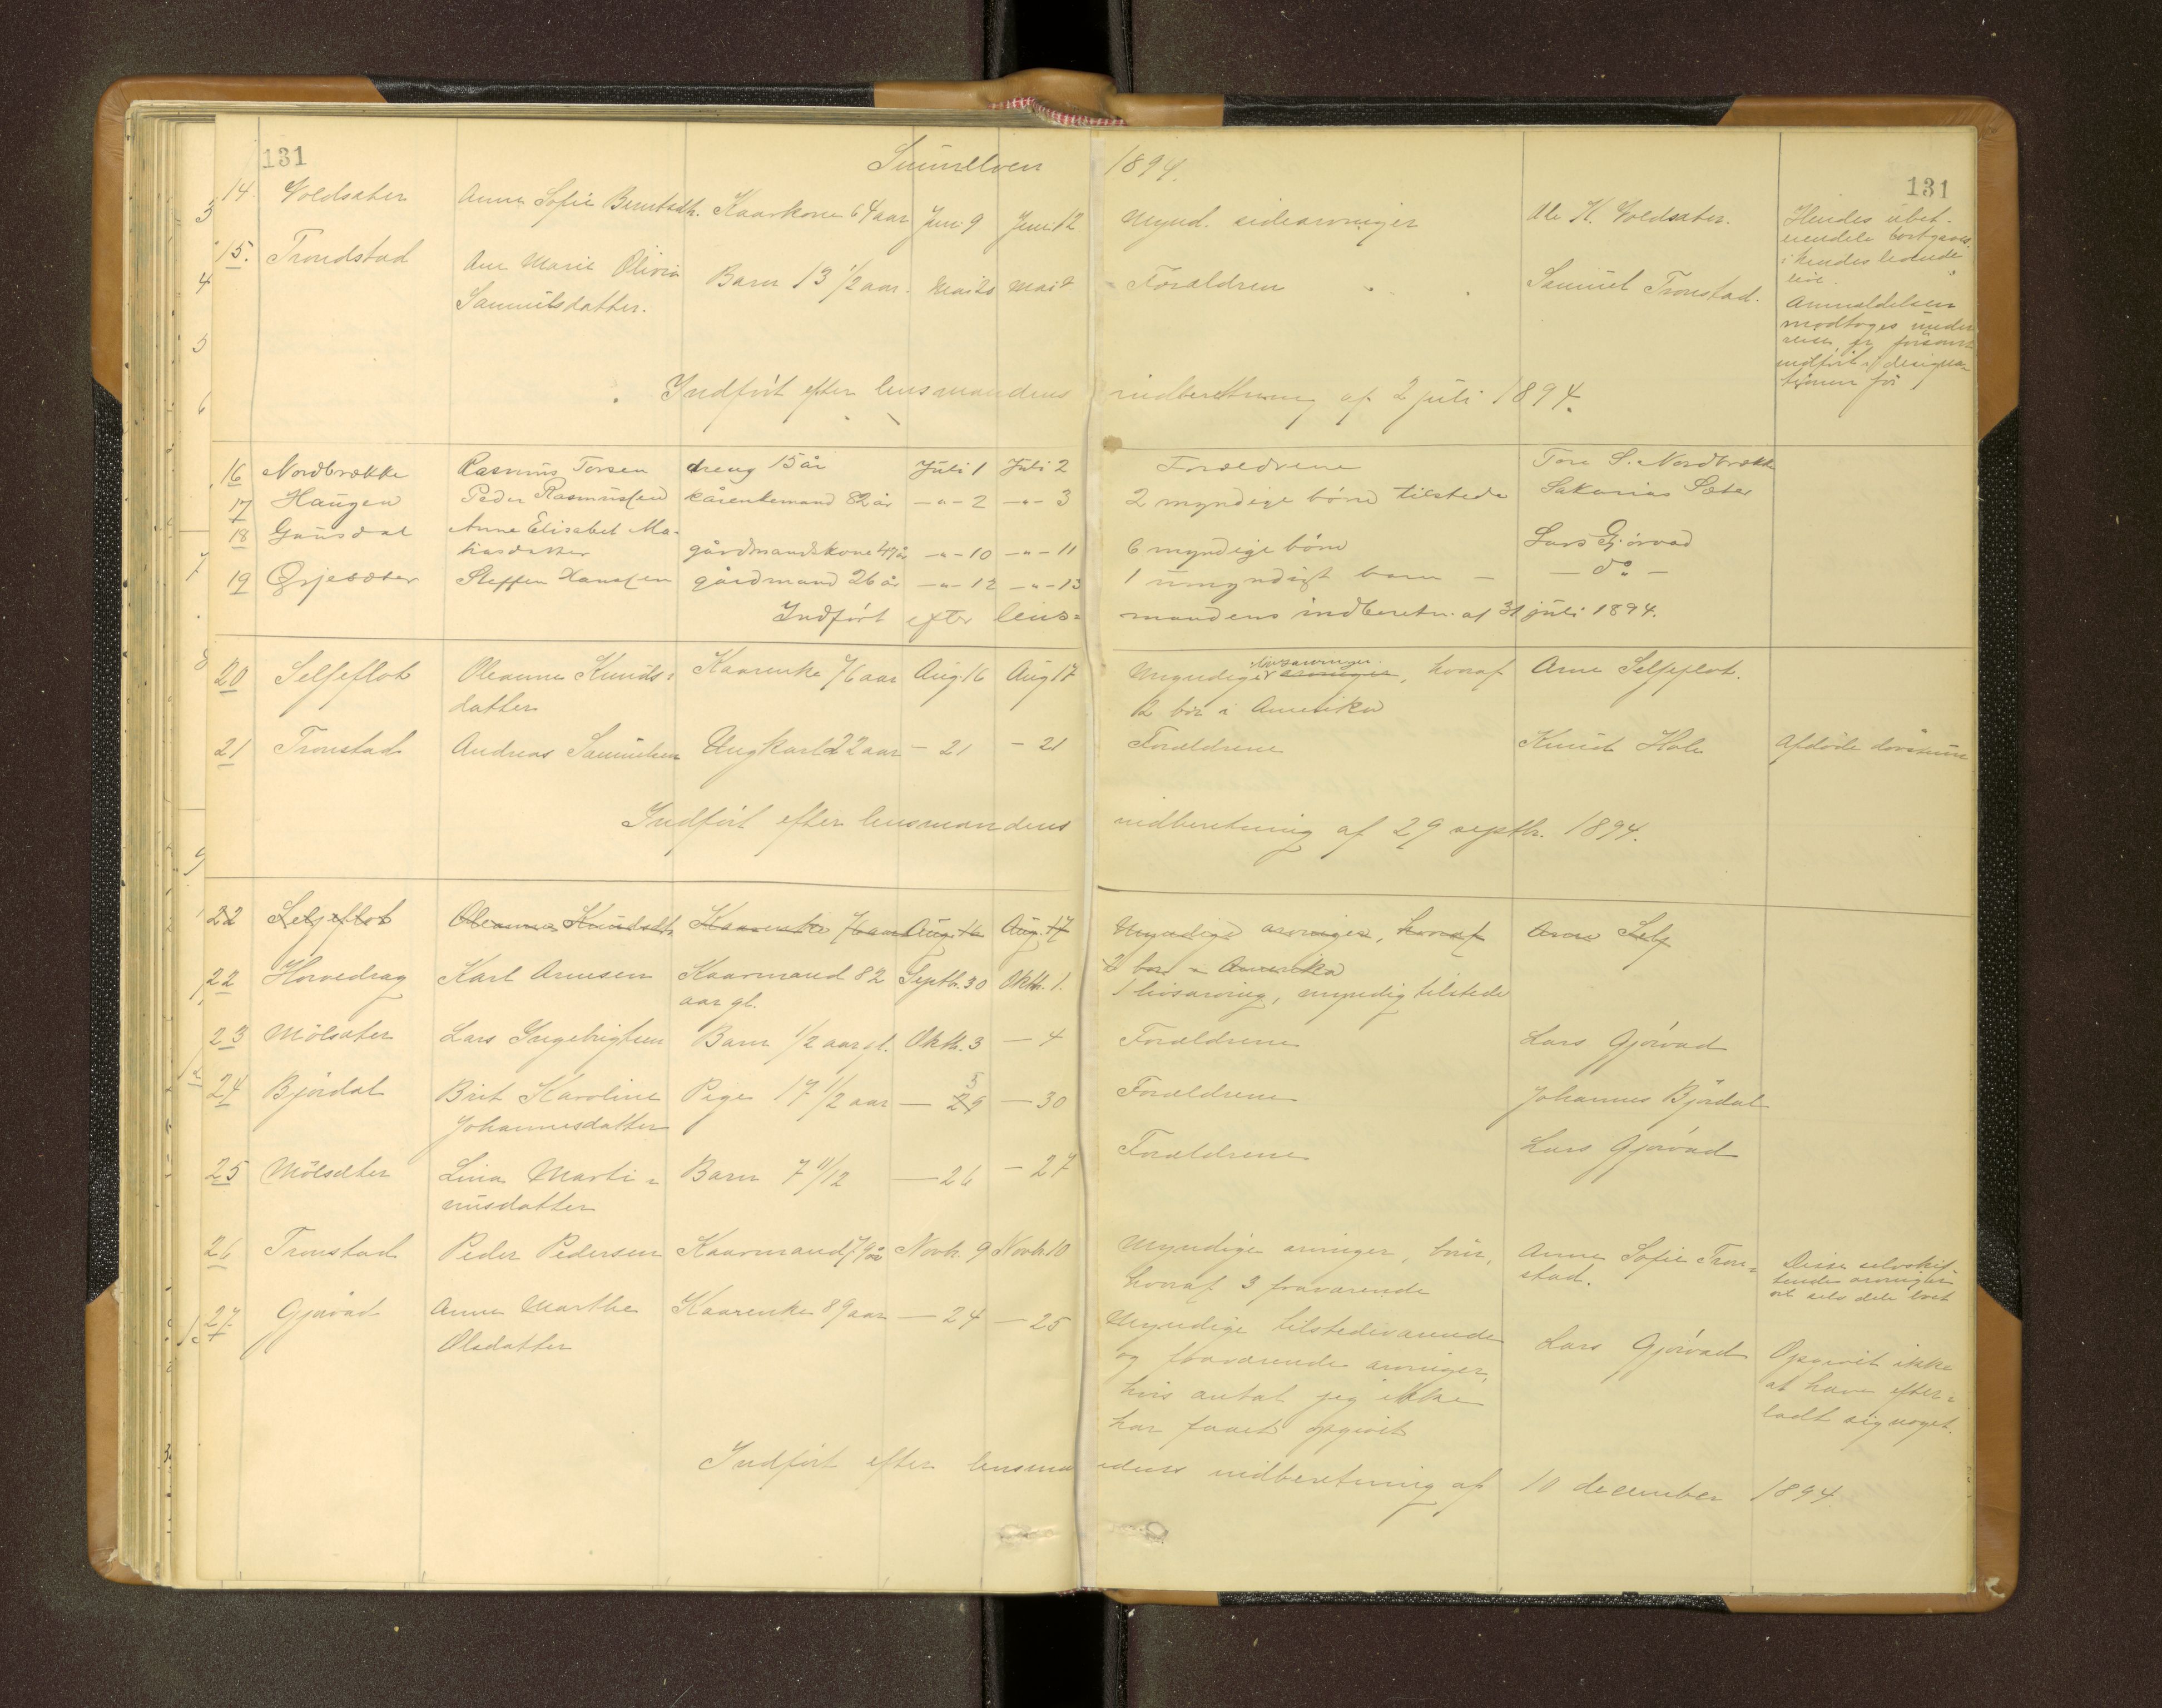 131
131
Sunnelven 1894.
14. Voldsæter Anne Sofie Berntsdtr. Kaarkone 64 aar Juni 9 Juni 12 Mynd. sidearvinger Ole K. Voldsæter. Hendes ubet.
endele bortgaves
i hendes levende
live.
15. Trondstad Ane Marie Olivia Barn 13 1/2 aar. Mai 20 Mai Forældrene Samuel Tronstad. Anmeldelsen
Samuelsdatter. modtoges under
indført i designa-
tionen for
Indført efter lensmandens indberetning af 2 juli 1894.
16 Nordbrække Rasmus Torsen dreng 15 år Juli 1 Juli 2 Forældrene Tore S. Nordbrække
17 Haugen Peder Rasmussen kårenkemand 82 år -"- 2 -"- 3 2 myndige børn tilstede Sakarias Sæter
18 Gausdal Anne Elisabet Ma-
tiasdatter gårdmandskone 47 år -"- 10 -"- 11 6 myndige børn Lars Gjørvad
19 Grjesæter Steffen Hanssen gårdmand 26 år -"- 12 -"- 13 1 umyndigt barn - - do -
Indført efter lens=mandens indberetn. af 31 juli 1894.
20 Seljeflot Oleanna Knuds= Kaarenke 76 aar Aug. 16 Aug 17 Myndige livsarvinger arvinger, hvoraf Arne Seljeflot.
datter 2 bor i Amerika
21 Tronstad Andreas Samuelsen Ungkarl 22 aar - 21 - 21 Forældrene Knud Hole Afdøde døvstum
Indført efter lensmandens indberetning af 29 septbr. 1894.
22 Seljeflot Oleanna Knudsdtr. Kaarenke 76 aar Aug. 16 Aug. 17 Myndige arvinger, hvoraf Arne Selj
2 bor i Amerika
22 Horvedrag Karl Arnesen Kaarmand 82 Septbr. 30 Oktbr. 1. 1 livsarving, myndig tilstede
aar gl.
23 Mölsæter Lars Ingebrigtsen Barn 1/2 aar gl. Oktbr. 3 - 4 Forældrene Lars Gjørvad
24 Bjørdal Brit Karoline Pige 17 1/2 aar - 29 5 - 30 Forældrene Johannes Bjørdal
Johannesdatter
25 Mölsæter Lina Marti= Barn 7 11/12 - 26 - 27 Forældrene Lars Gjørvad
nusdatter
26 Tronstad Peder Pedersen Kaarmand 79 år Novbr. 9 Novbr. 10 Myndige arvinger, børn, Anne Sofie Tron= Disse selvskif-
hvoraf 3 fraværende stad. tende arvinger
selv dele boet
27 Gjørvad Anne Marthe Kaarenke 89 aar - 24 - 25 Myndige tilstedeværende Lars Gjørvad Opgivet ikke
Olsdatter og fraværende arvinger, at have efter=
hvis antal jeg ikke ladt sig noget.
har faaet opgivet
Indført efter lensmandens indberetning af 10 december 1894.